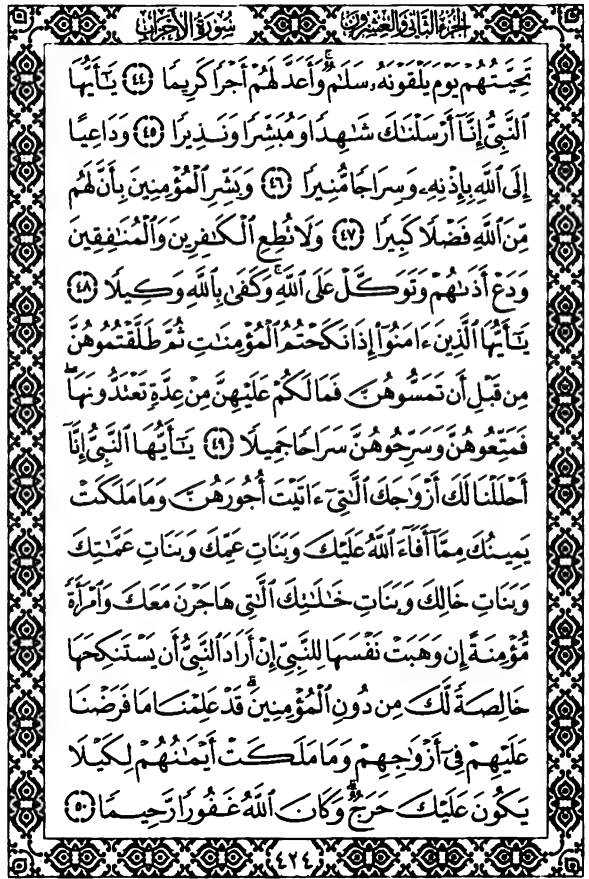 الجزء الثاني والعشرون سورة الأحزاب
تَحِيَّتُهُمْ يَوْمَ يَلْقَوْنَهُۥ سَلَٰمٌۚ وَأَعَدَّ لَهُمْ أَجْرًا كَرِيمًا ٤٤ يَٰٓأَيُّهَا
ٱلنَّبِىُّ إِنَّآ أَرْسَلْنَٰكَ شَٰهِدًا وَمُبَشِّرًا وَنَذِيرًا ٤٥ وَدَاعِيًا
إِلَى ٱللَّهِ بِإِذْنِهِۦ وَسِرَاجًا مُّنِيرًا ٤٦ وَبَشِّرِ ٱلْمُؤْمِنِينَ بِأَنَّ لَهُم
مِّنَ ٱللَّهِ فَضْلًا كَبِيرًا ٤٧ وَلَا تُطِعِ ٱلْكَٰفِرِينَ وَٱلْمُنَٰفِقِينَ
وَدَعْ أَذَىٰهُمْ وَتَوَكَّلْ عَلَى ٱللَّهِۚ وَكَفَىٰ بِٱللَّهِ وَكِيلًا ٤٨
يَٰٓأَيُّهَا ٱلَّذِينَ ءَامَنُوٓا۟ إِذَا نَكَحْتُمُ ٱلْمُؤْمِنَٰتِ ثُمَّ طَلَّقْتُمُوهُنَّ
مِن قَبْلِ أَن تَمَسُّوهُنَّ فَمَا لَكُمْ عَلَيْهِنَّ مِنْ عِدَّةٍ تَعْتَدُّونَهَاۖ
فَمَتِّعُوهُنَّ وَسَرِّحُوهُنَّ سَرَاحًا جَمِيلًا ٤٩ يَٰٓأَيُّهَا ٱلنَّبِىُّ إِنَّآ
أَحْلَلْنَا لَكَ أَزْوَٰجَكَ ٱلَّٰتِىٓ ءَاتَيْتَ أُجُورَهُنَّ وَمَا مَلَكَتْ
يَمِينُكَ مِمَّآ أَفَآءَ ٱللَّهُ عَلَيْكَ وَبَنَاتِ عَمِّكَ وَبَنَاتِ عَمَّٰتِكَ
وَبَنَاتِ خَالِكَ وَبَنَاتِ خَٰلَٰتِكَ ٱلَّٰتِى هَاجَرْنَ مَعَكَ وَٱمْرَأَةً
مُّؤْمِنَةً إِن وَهَبَتْ نَفْسَهَا لِلنَّبِىِّ إِنْ أَرَادَ ٱلنَّبِىُّ أَن يَسْتَنكِحَهَا
خَالِصَةً لَّكَ مِن دُونِ ٱلْمُؤْمِنِينَۗ قَدْ عَلِمْنَا مَا فَرَضْنَا
عَلَيْهِمْ فِىٓ أَزْوَٰجِهِمْ وَمَا مَلَكَتْ أَيْمَٰنُهُمْ لِكَيْلَا
يَكُونَ عَلَيْكَ حَرَجٌۗ وَكَانَ ٱللَّهُ غَفُورًا رَّحِيمًا ٥٠
٤٢٤